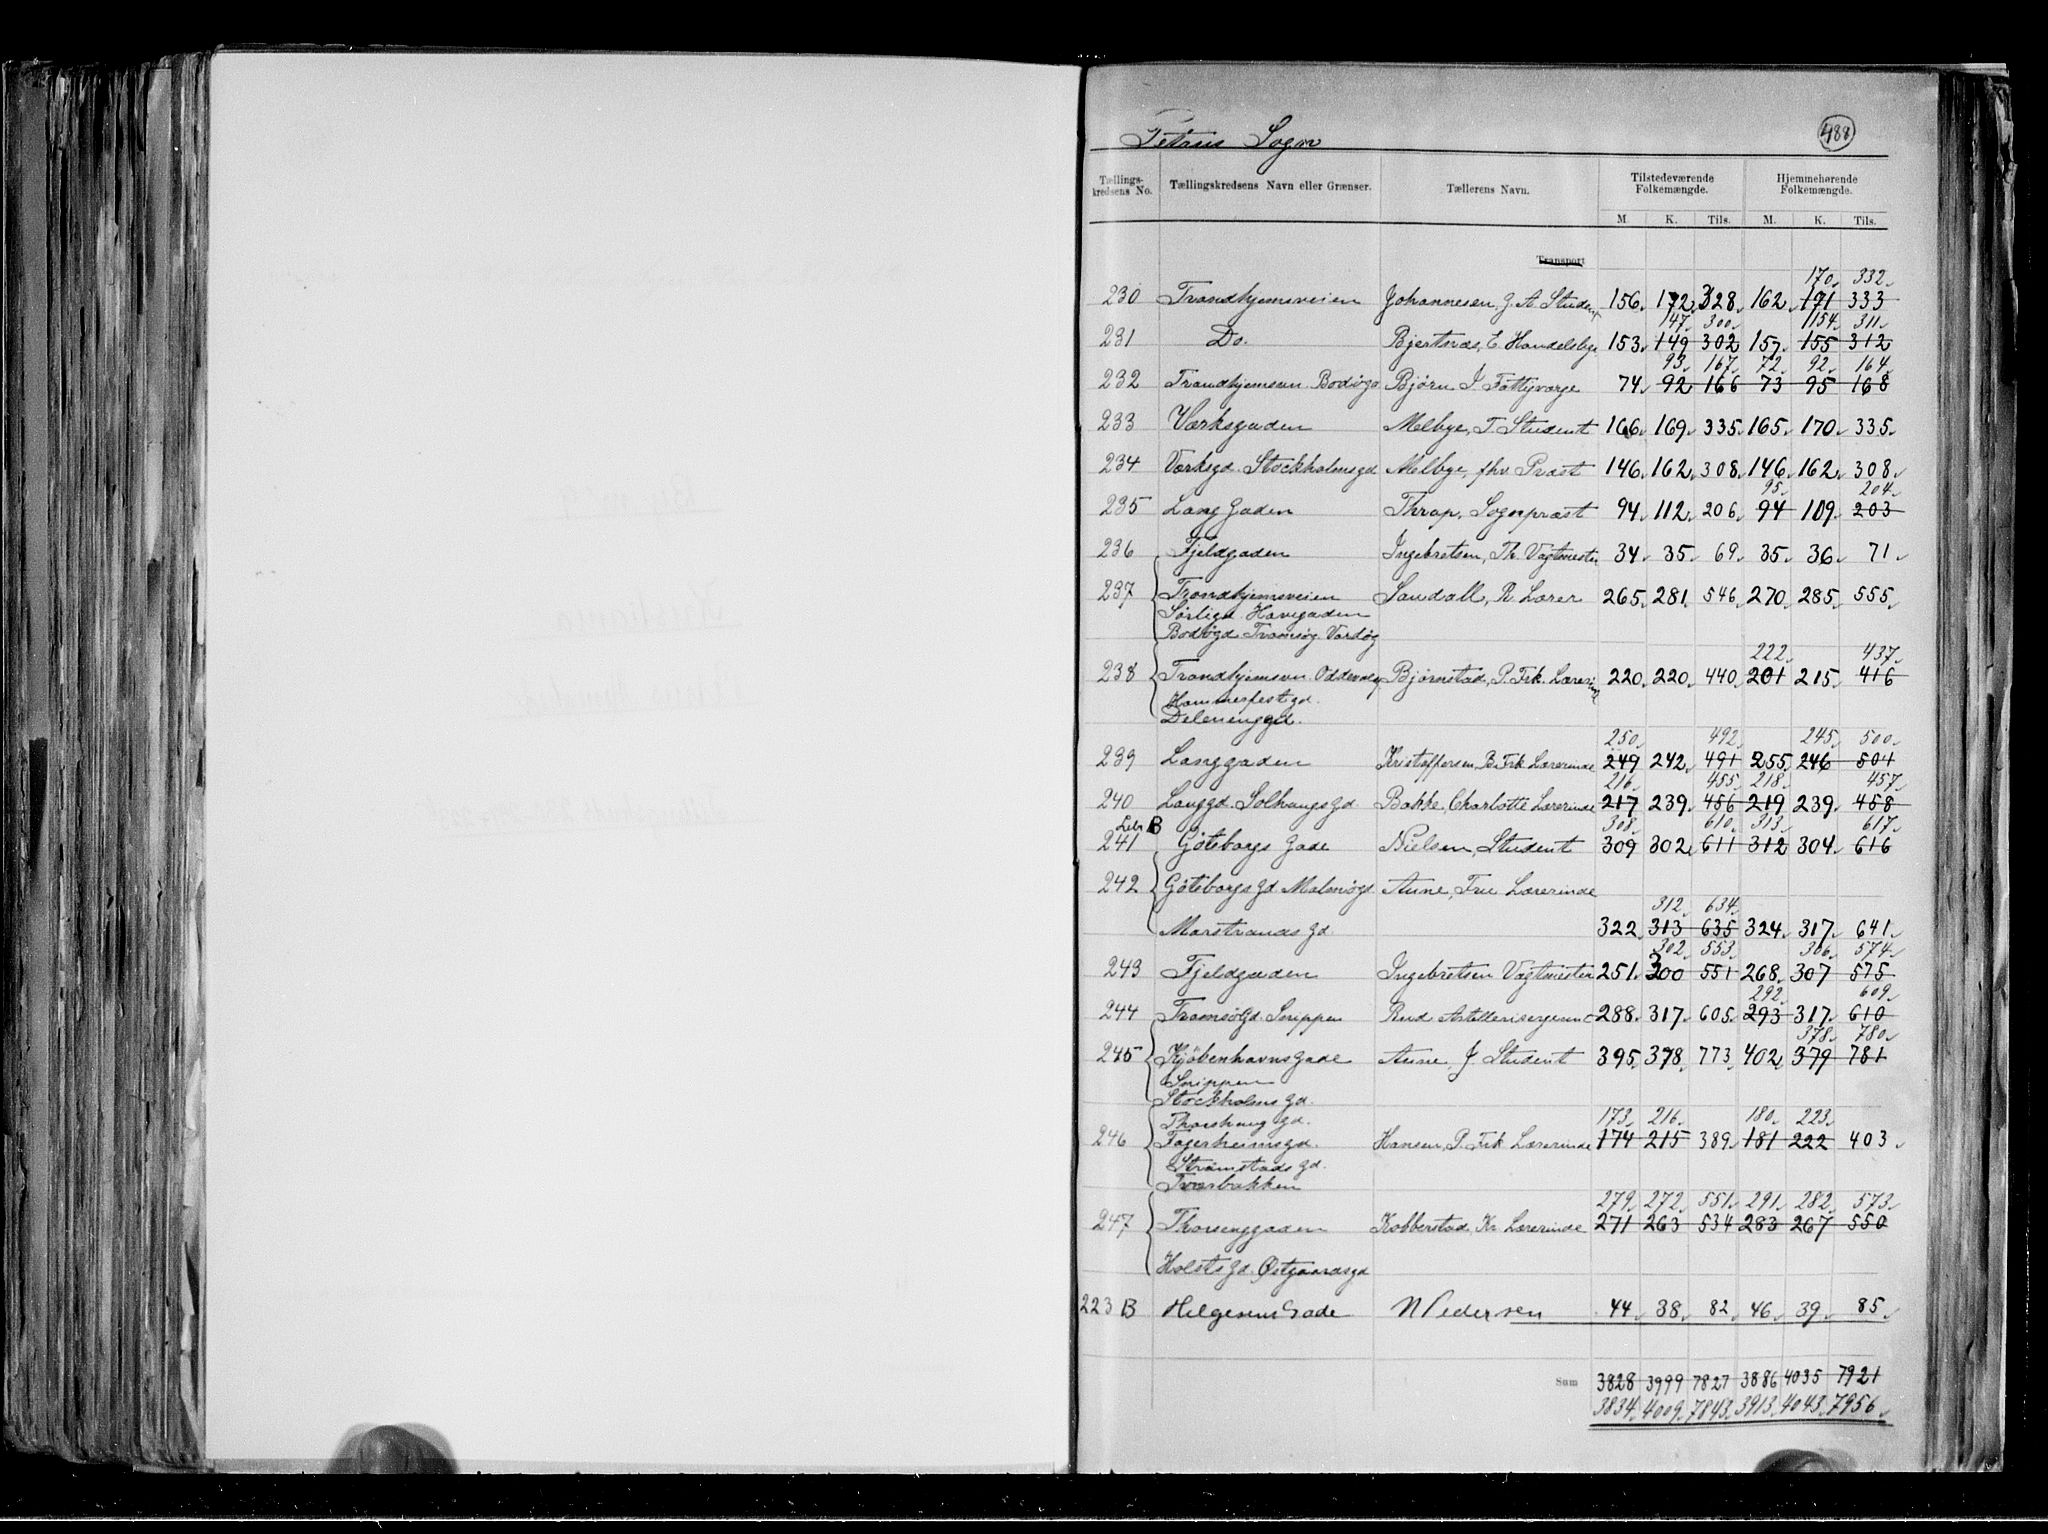 Petrus Sogn 488
Tællings-kredsens No. Tællingskredsens Navn eller Grænser. Tællerens Navn. Tilstedeværende Folkemængde. Hjemmehørende Folkemængde.
M. K. Tils. M. K. Tils.
Transport
170 332
230 Trondhjemsveien Johannesen, J. A. Student 156 172 328 162 171 333
147 300 154 311
231 Do. Bjertnæs, E. Handelsbet 153 149 302 157 155 312
93 167 72 92 164
232 Trondhjemsvn. Bodøgd Bjørn J. Fattigvorge 74 92 166 73 95 168
233 Værksgaden Melbye, T. Student 166 169 335 165 170 335
234 Værksgd. Stockholmsgd Melbye, fhv Præst 146 162 308 146 162 308
95 204
235 Langgaden Thrap, Sognepræst 94 112 206 94 109 203
236 Fjeldgaden Ingebretsen, Th. Vagtmester 34 35 69 35 36 71
237 Trondhjemsveien Sandall, R. Lærer 265 281 546 270 285 555
Sørligd. Havegaden
Bodøgd Tromsøg. Vardøg
222 437
238 Trondhjemsvn. Oddevaldg Bjørnstad, P. Frk. Lærerinde 220 220 440 201 215 416
Hammerfestgd.
Delenenggd.
250 492 245 500
239 Langgaden Kristoffersen, B. Frk Lærerinde 249 242 491 255 246 501
216 455 218 457
240 Langgd. Solhaugsgd Bakke, Charlotte Lærerinde 217 239 456 219 239 458
Litr B 308 610 313 617
241 Göteborgs Gade Nielsen, Student 309 302 611 312 304 616
242 Göteborgs gd Malmøgd Aune, Fru Lærerinde
312 634
Marstrands gd. 322 313 635 324 317 641
302 553 306 574
243 Fjeldgaden Ingebretsen Vagtmester 251 300 551 268 307 575
292 609
244 Tromsøgd. Snippen Rud Artillerisergeant 288 317 605 293 317 610
378 780
245 Kjøbenhavnsgade Aune, J. Student 395 378 773 402 379 781
Snippen
Stockholms gd.
Thorshaug gd. 173 216 180 223
246 Fagerheimsgd. Hansen, P. Frk Lærerinde 174 215 389 181 222 403
Strømstads gd.
Tværbakken
279 272 551 291 282 573
247 Thorsenggaden Kobberstad, Kr. Lærerinde 271 263 534 283 267 550
Holsts gd. Østgaardsgd
223 B Helgesens Gade N Pedersen 44 38 82 46 39 85
Sum 3828 3999 7827 3886 4035 7921
3834 4009 7843 3913 4043 7956